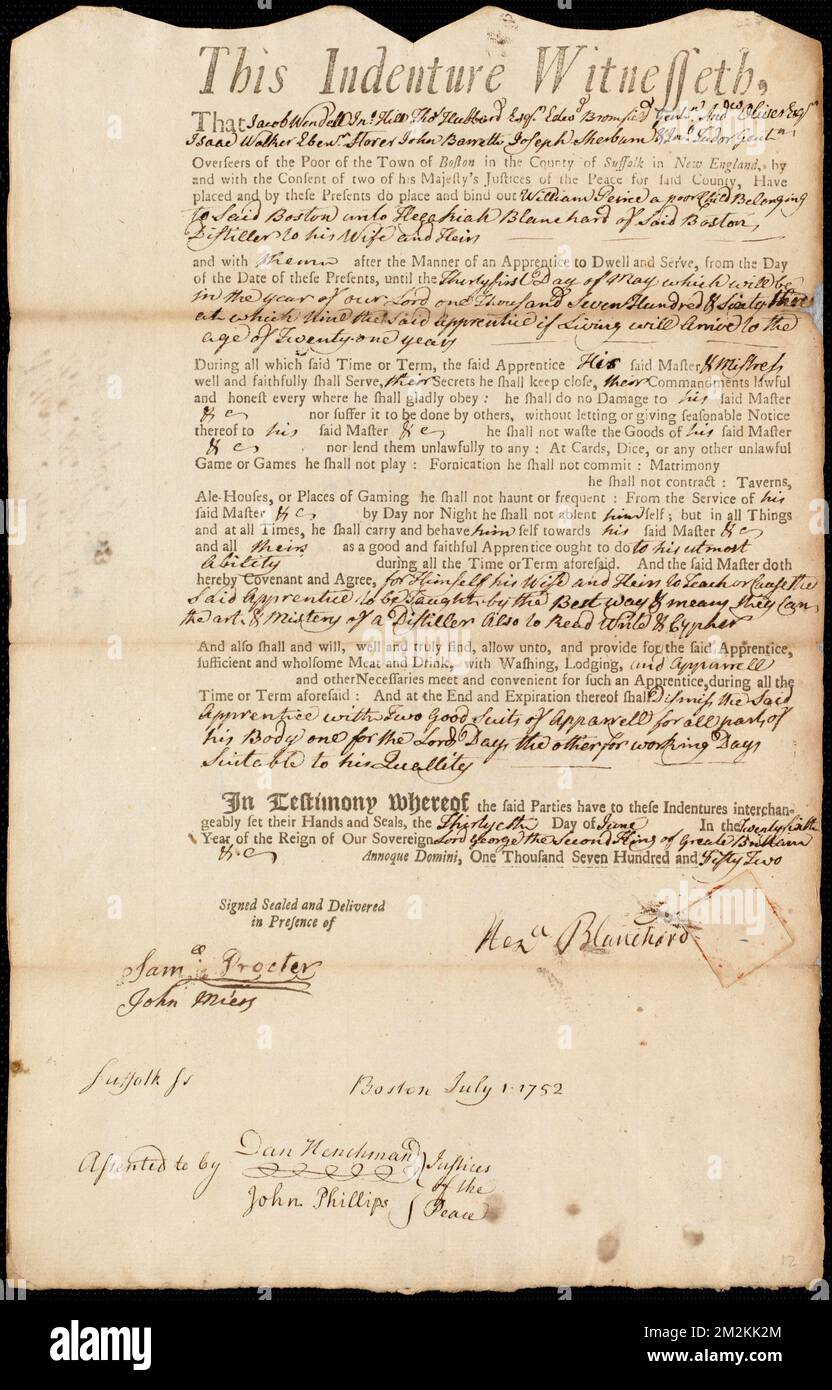 This Indenture Witnesseth,
That Jacob Wendell Jnº Hill Thoˢ Hubbard Esqʳˢ Edwᵈ Bromfield Gentⁿ Andʷ Oliver Esqʳ
Isaac Walker Ebenʳ Storer John Barrett Joseph Sherburn & Jnº Tudor Gentⁿ
Overseers of the Poor of the Town of Boston in the County of Suffolk in New England, by
and with the Consent of two of his Majesty's Justices of the Peace for said County, Have
placed and by these Presents do place and bind out William Peirce a poor Child Belonging
to Said Boston unto Hezekiah Blanchard of Said Boston
Distiller to his Wife and Heirs
and with them after the Manner of an Apprentice to Dwell and Serve, from the Day
of the Date of these Presents, until the Thirty first Day of May which will be
in the year of our Lord one Thousand Seven Hundred & Sixty three
at which time the said apprentice if Living will Arive to the
age of Twenty one years
During all which said Time or Term, the said Apprentice His said Master & Mistress
well and faithfully shall Serve, their Secrets he shall keep close, their Commandments lawful
and honest every where he shall gladly obey : he shall do no Damage to his said Master
& c nor suffer it to be done by others, without letting or giving seasonable Notice
thereof to his said Master & c he shall not waste the Goods of his said Master
& c nor lend them unlawfully to any : At Cards, Dice, or any other unlawful
Game or Games he shall not play : Fornication he shall not commit : Matrimony
he shall not contract : Taverns,
Ale-Houses, or Places of Gaming he shall not haunt or frequent : From the Service of his
said Master & c by Day nor Night he shall not absent himself ; but in all Things
and at all Times, he shall carry and behave him self towards his said Master & c
and all theirs as a good and faithful Apprentice ought to do to his utmost
Ability during all the Time or Term aforesaid. And the said Master doth
hereby Covenant and Agree, for Himself his Wife and Heirs to Teach or Cause the
Said Apprentice to be Taught by the Best way & means they Can
the art & Mistery of a Distiller Also to Read Write & Cypher
And also shall and will, well and truly find, allow unto, and provide for the said Apprentice,
sufficient and wholsome Meat and Drink, with Washing, Lodging, and Apparrell
and other Necessaries meet and convenient for such an Apprentice, during all the
Time or Term aforesaid : And at the End and Expiration thereof shall Dismiss the Said
Apprentice with Two Good Suits of Apparrell for all parts of
his Body one for the Lords Days the other for working Days
Suitable to his Quallity
In Testimony whereof the said Parties have to these Indentures interchan-
geably set their Hands and Seals, the Thirtyeth Day of June In the Twenty sixth
Year of the Reign of Our Sovereign Lord George the Second King of Greate Brittain
& c Annoque Domini, One Thousand Seven Hundred and Fifty Two
Signed Sealed and Delivered
in Presence of
Hezᵃ Blanchard
Samˡˡ Procter
John Miers
Suffolk Ss Boston July 1 · 1752
Assented to by Dan Henchman
John Phillips
Justices
of the
Peace
12
alamy
Image ID: 2M2KK2M
www.alamy.com